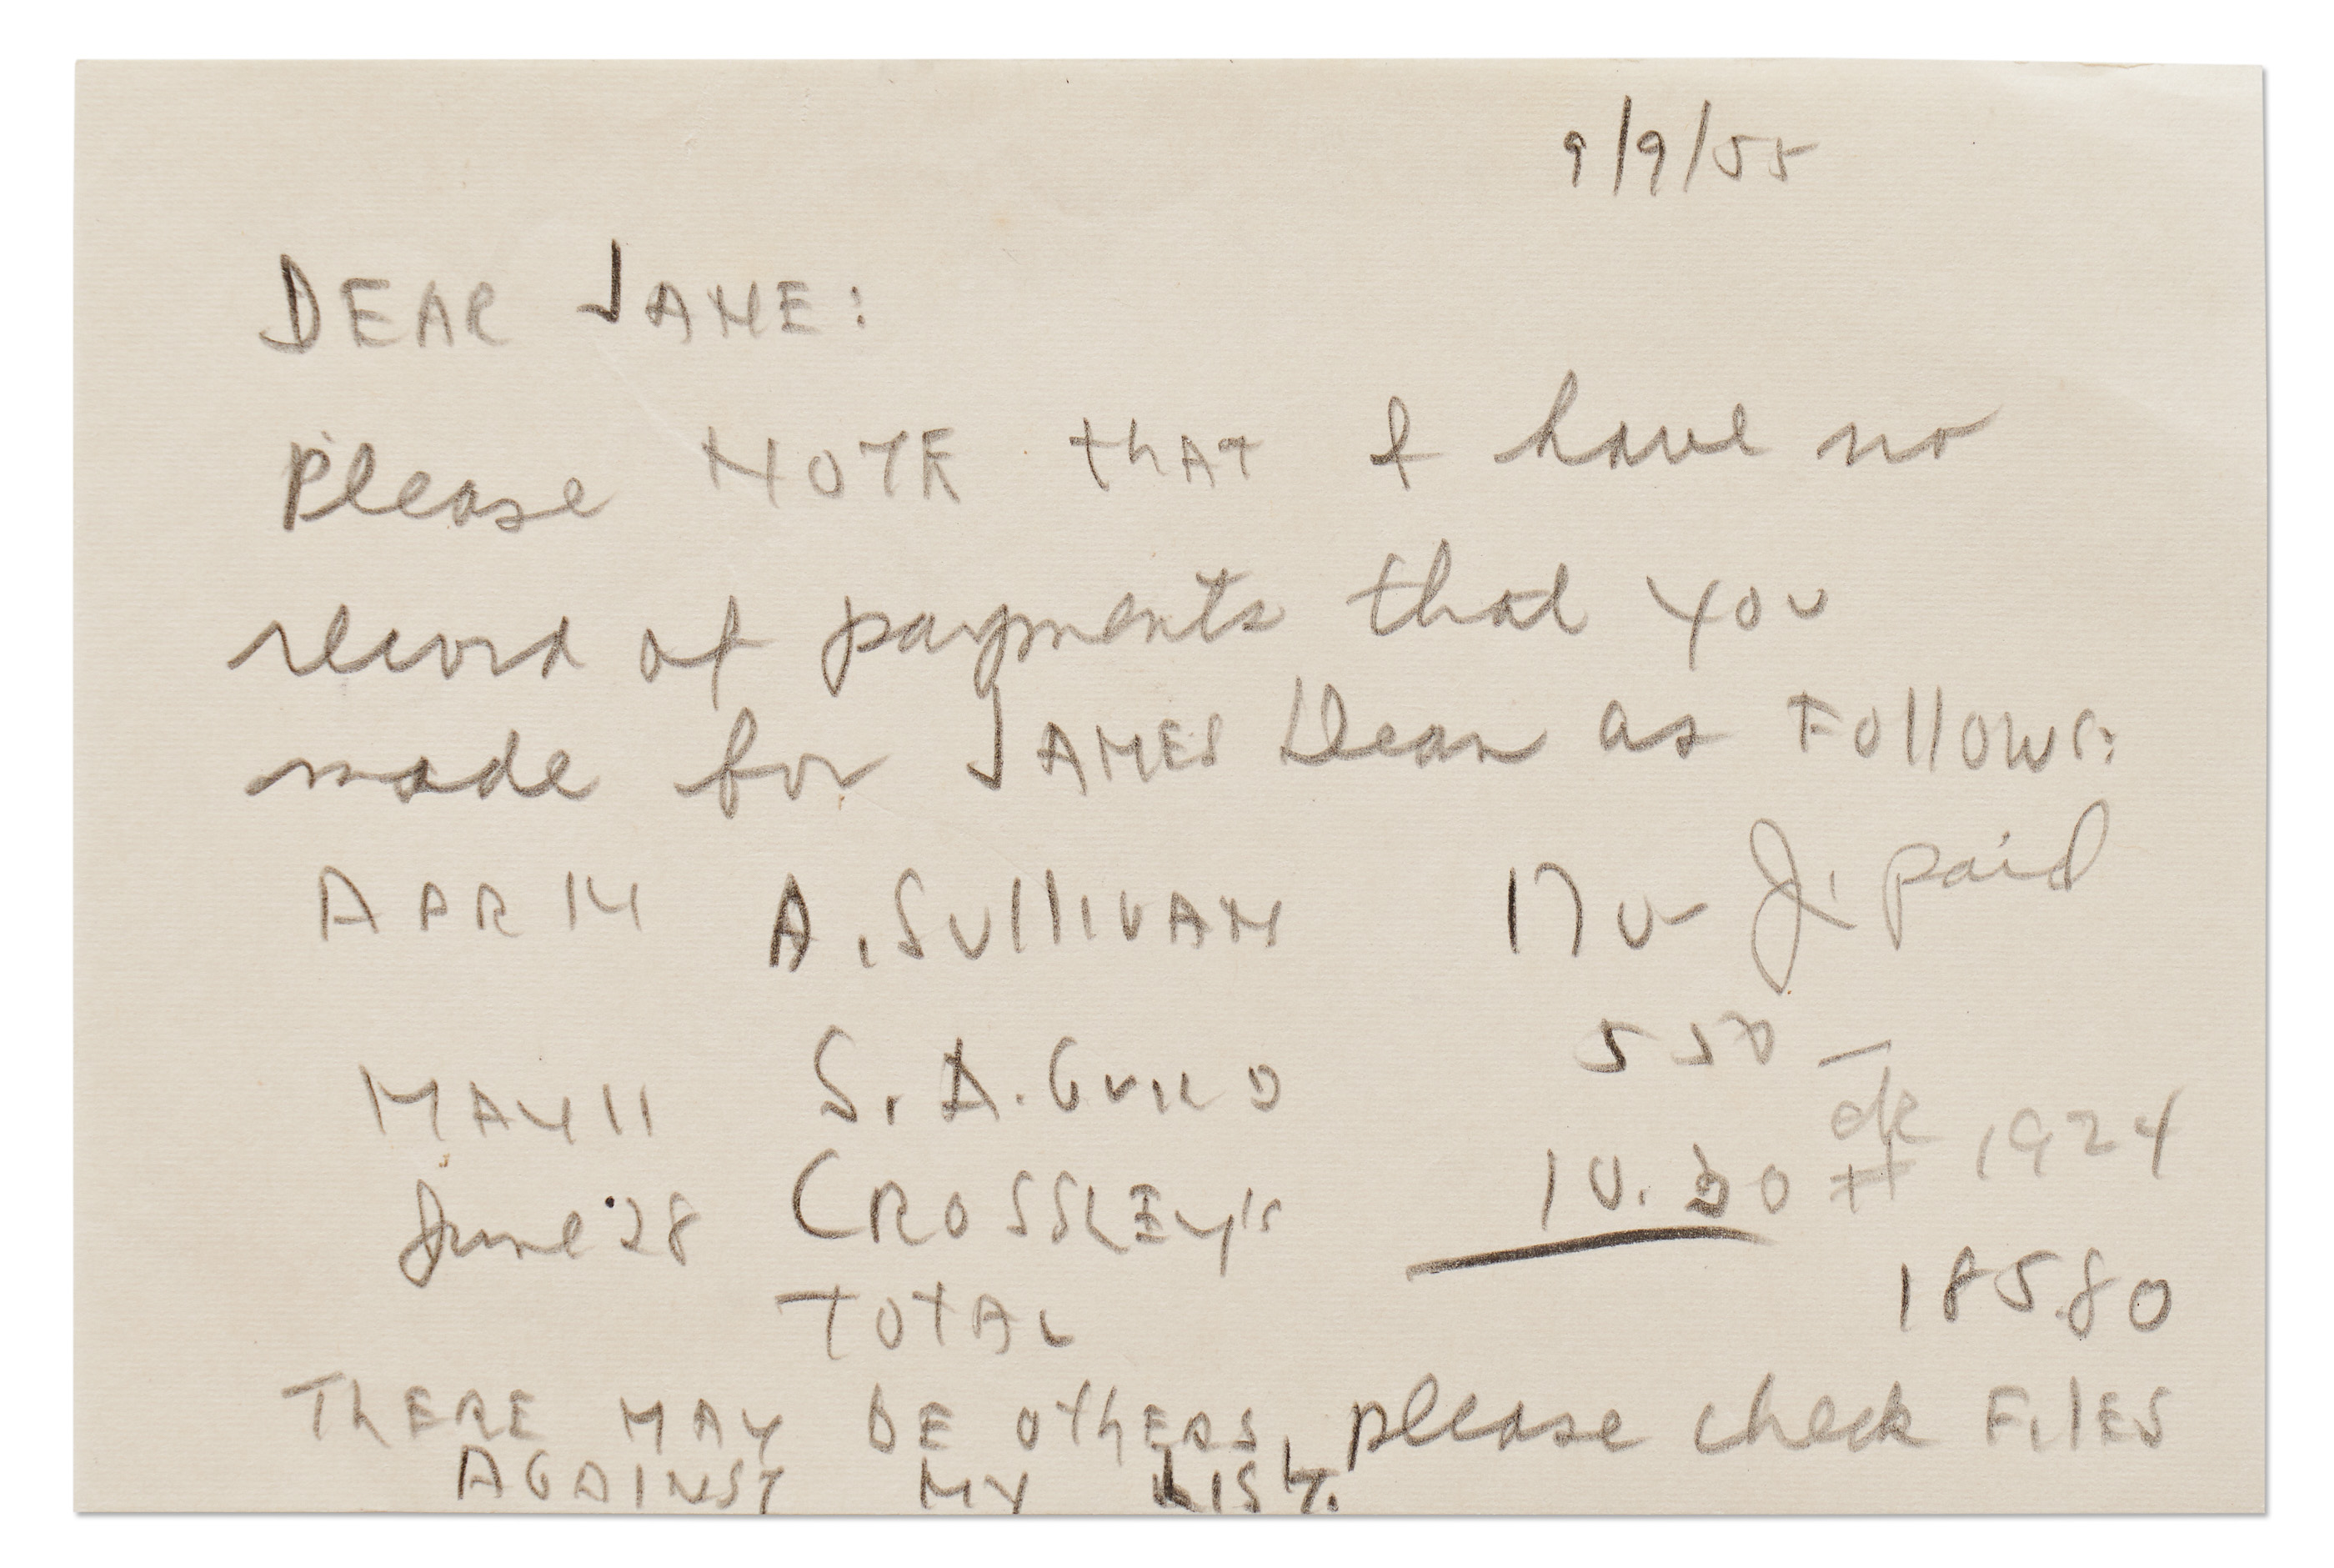 9/9/55
DEAR JANE:
Please NOTE that I have no
record of payments that you
made for JAMES Dean as Follows:
APR 14 A. SULLIVAN 170- J. paid
MAY 11 S. A. GUILD 5 50 -
June 28 CROSSLEY'S 10.30 ck # 1924
TOTAL 185.80
THERE MAY BE OTHERS, please check FILES
AGAINST MY LIST.